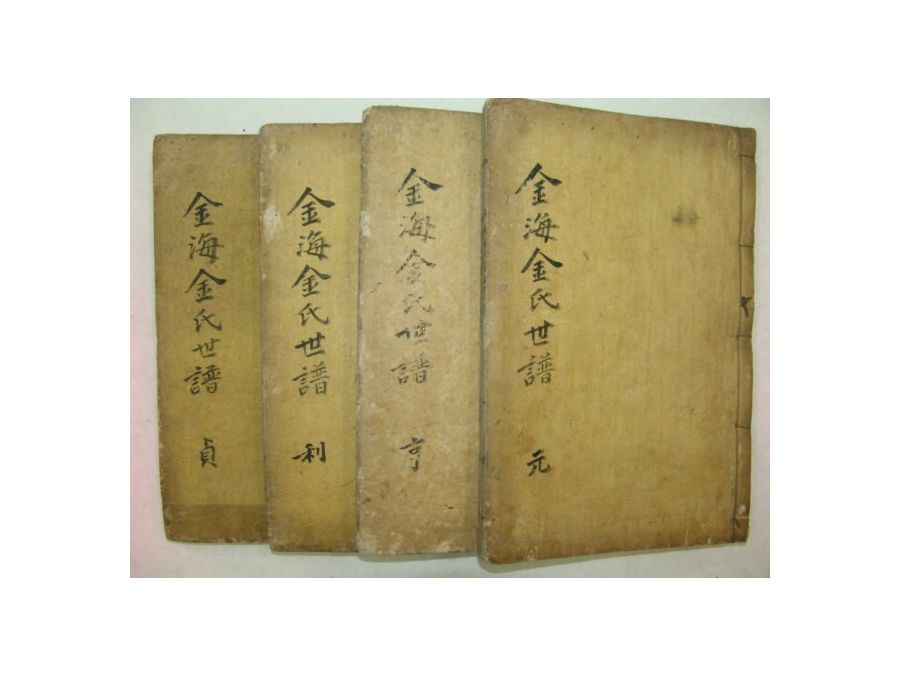 金海金氏世譜
元
金海金氏世譜
亨
金海金氏世譜
利
金海金氏世譜
貞